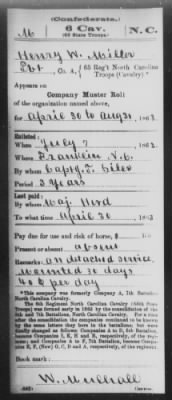 (Confederate.)
M 6 Cav. N. C.
(65 State Troops.)
Henry W. Miller
Pvt, Co. A, 65 Reg't North Carolina Troops (Cavalry).*
Appears on
Company Muster Roll
of the organization named above,
for April 30 to Aug 31, 1863.
Enlisted:
When July 7, 1862.
Where Franklin N.C.
By whom Capt. J. Siler
Period 3 years
Last paid:
By whom Maj. Herd
To what time April 30, 1863.
Pay due for use and risk of horse, $
Present or absent absent
Remarks: on detached service
mounted 30 days
40 ¢ per day
*This company was formerly Company A, 7th Battalion,
North Carolina Cavalry.
The 6th Regiment North Carolina Cavalry (65th State
Troops) was formed early in 1863 by the consolidation of the
5th and 7th Battalions, North Carolina Cavalry. For a time
after the consolidation the companies continued to be known
by the same letters they bore in the battalions, but were
Book mark:
W. Mulhall
(642) Copyist.